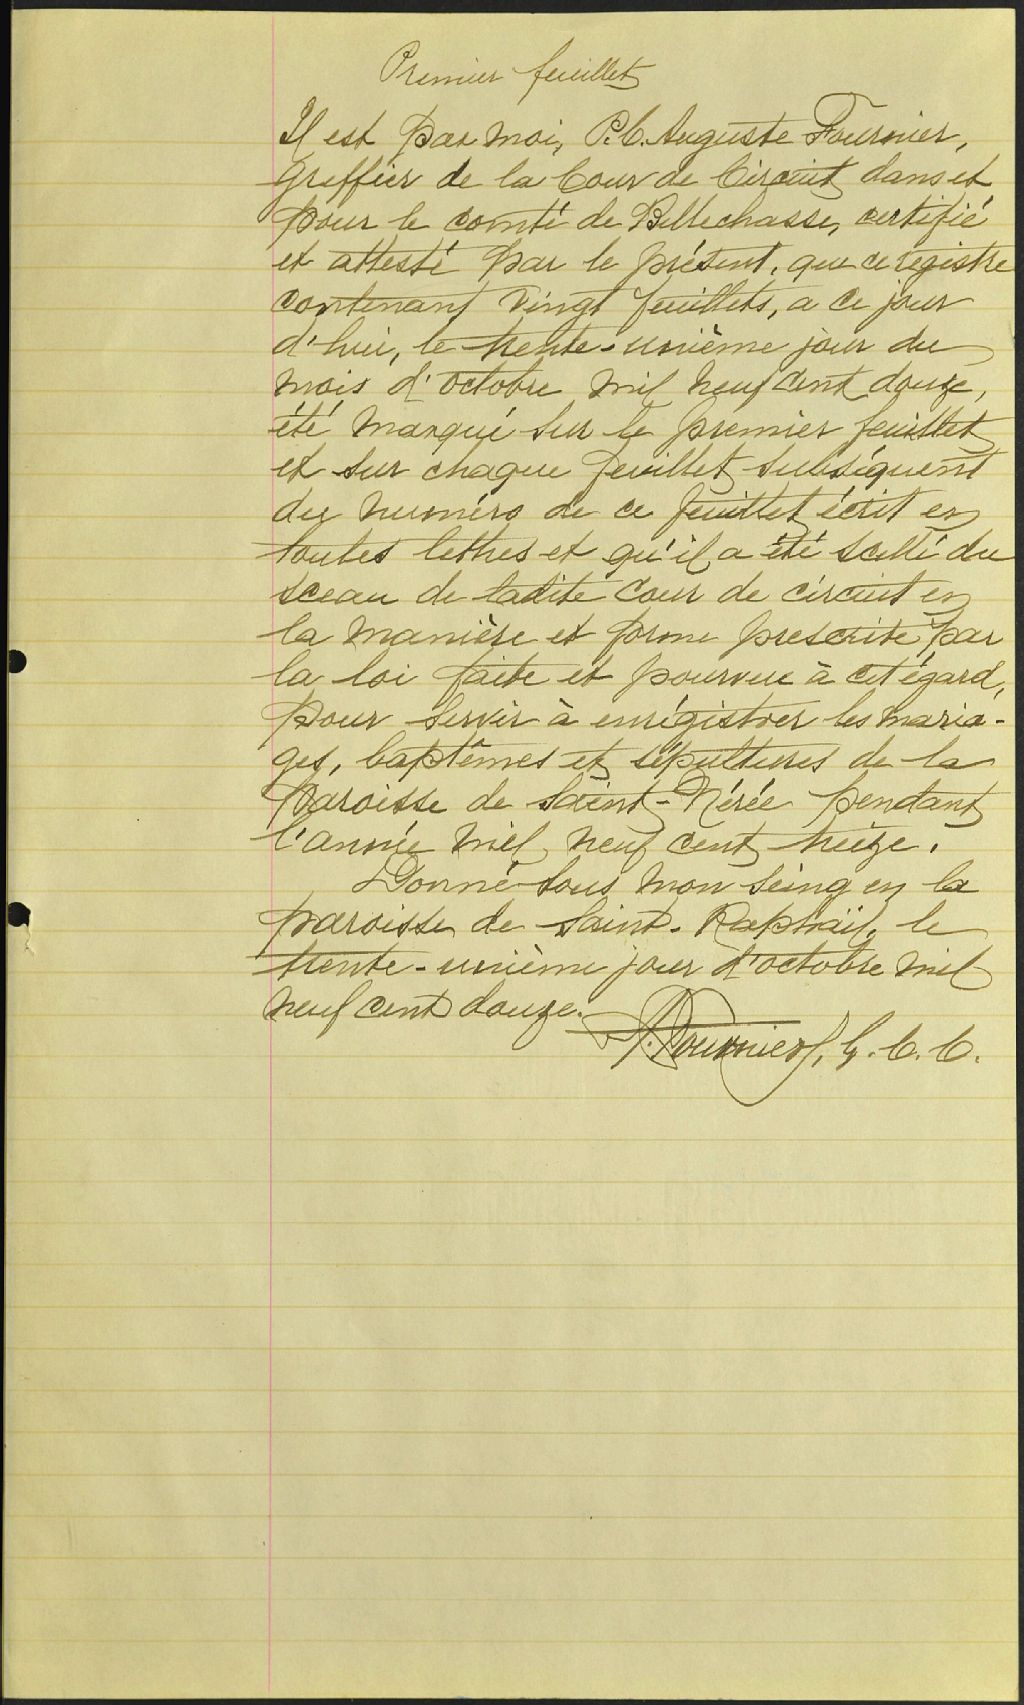 Premier feuillet
Il est par moi, P.C. Auguste Fournier,
greffier de la Cour de Circuit dans et
pour le comté de Bellechasse, certifié
et attesté par le présent, que ce registre
contenant vingt feuillets, a ce jour
d'hui, le trente-unième jour du
mois d'octobre mil neuf cent douze,
été marqué sur le premier feuillet
et sur chaque feuillet subséquent
du numéro de ce feuillet écrit en
toutes lettres et qu'il a été scellé du
sceau de ladite Cour de circuit en
la manière et forme prescrite par
la loi faite et pourvue à cet égard,
pour servir à enrégistrer les maria-
ges, baptêmes et sépultures de la
Paroisse de Saint-Nérée pendant
l'année mil neuf cent treize.
Donné sous mon seing en la
paroisse de Saint-Raphaël, le
trente-unième jour d'octobre mil
neuf cent douze.
Fournier, G.C.C.